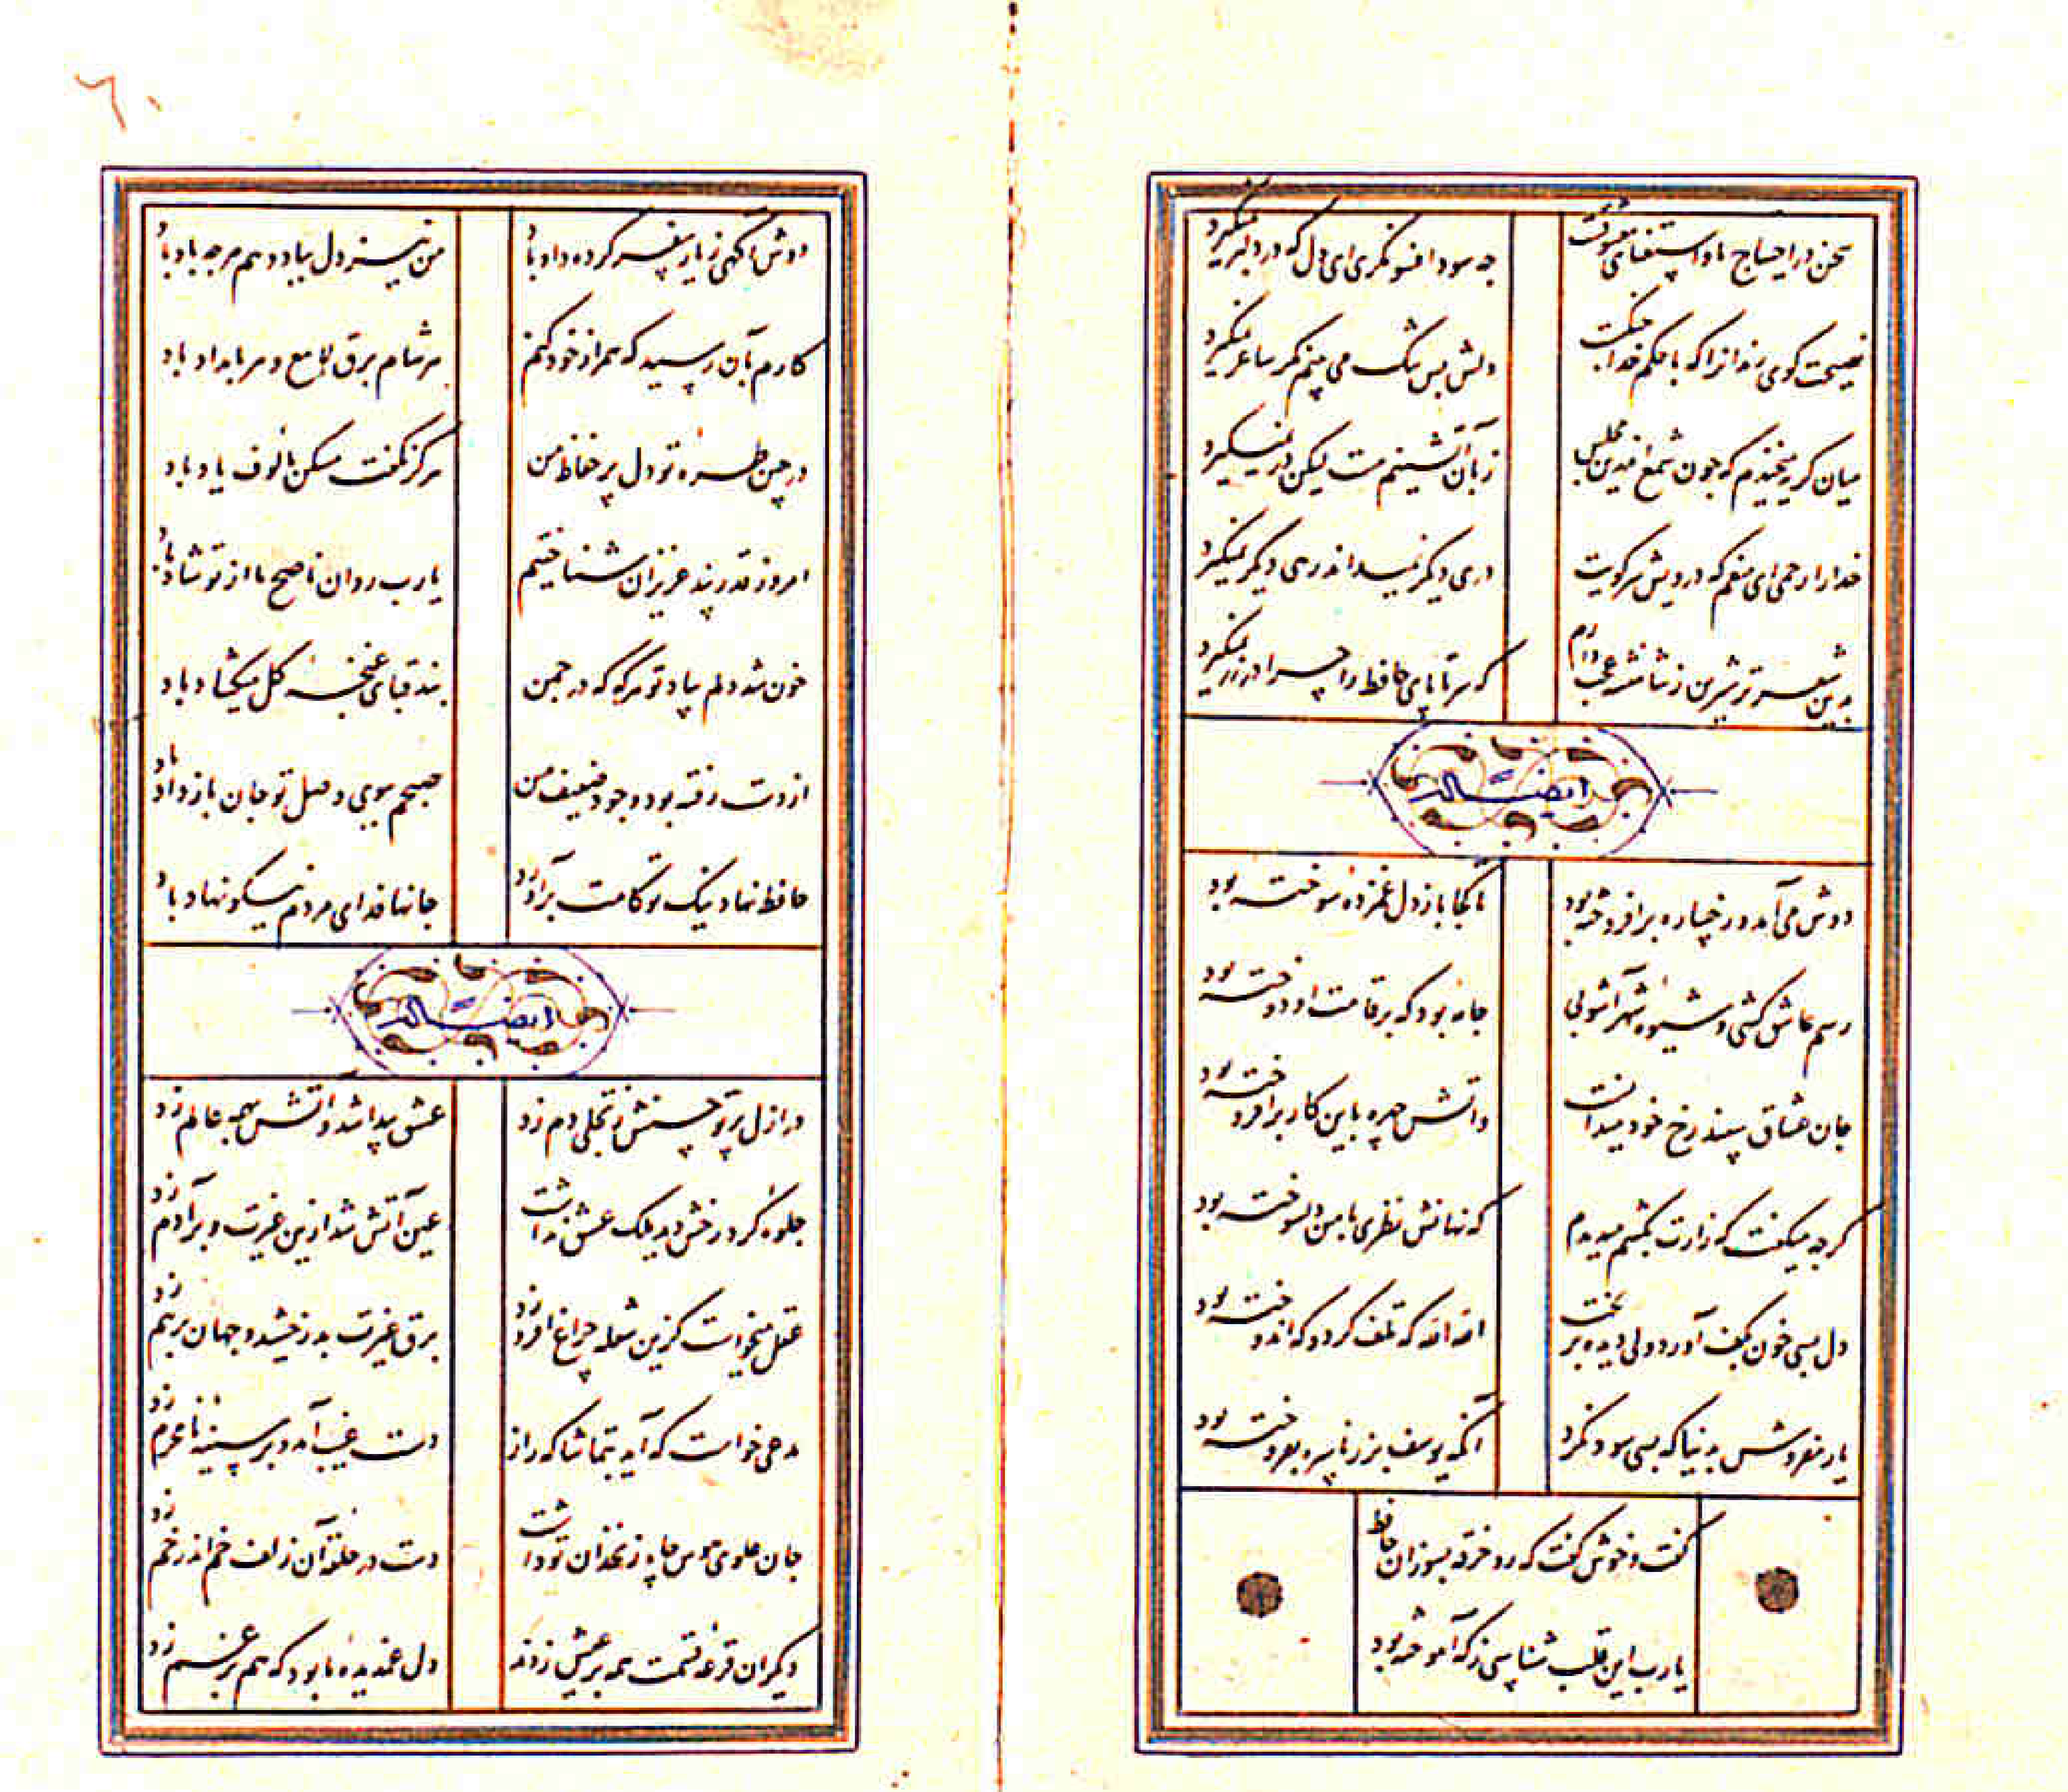 سخن در احتیاج ما و استغنای معشوقست
چه سود افسونگری ای دل که در دلبر نمیگیرد
نصیحت کوی رندانرا که با حکم خدا جنگست
دلش بس تنک می بینم مکر ساغر نمیگیرد
میان کریه میخندم که چون شمع اندرین مجلس
زبان آتشینم هست لیکن در نمیگیرد
خدا را رحمی ای منعم که درویش سر کویت
دری دیکر نمیداند رهی دیکر نمیگیرد
بدین شعر تر شیرین ز شاهنشه عجب دارم
که سر تا پای حافظ را چرا در زر نمیگیرد
ایضاً له
دوش می آمد و رخساره برافروخته بود
تا کجا باز دل غمزدهٔ سوخته بود
رسم عاشق کشی و شیوه شهر آشوبی
جامهٔ بود که بر قامت او دوخته بود
جان عشاق سپند رخ خود میدانست
واتش چهره باین کار برافروخته بود
کرچه میکفت که زارت بکشم میدیدم
که نهانش نظری با من دلسوخته بود
دل بسی خون بکف آورد ولی دیده بریخت
الله الله که تلف کرد و که اندوخته بود
یار مفروش بدنیا که بسی سود نکرد
آنکه یوسف بزر ناسره بفروخته بود
کفت و خوش کفت که رو خرقه بسوزان حافظ
یارب این قلب شناسی ز که آموخته بود
٦٠
دوش آکهی ز یار سفر کرده داد باد
من نیز دل بباد دهم هرچه باد باد
کارم بآن رسید که همراز خود کنم
هر شام برق لامع و هر بامداد باد
در چین طره تو دل پر حفاظ من
هرکز نکفت مسکن مالوف یاد باد
امروز قدر پند عزیزان شناختیم
یارب روان ناصح ما از تو شاد باد
خون شد دلم بیاد تو هرکه که در چمن
بند قبای غنچه کل میکشاد باد
از دست رفته بود وجود ضعیف من
صبحم ببوی وصل تو جان باز داد باد
حافظ نهاد نیک تو کامت برآورد
جانها فدای مردم نیکو نهاد باد
ایضاً له
در ازل پرتو حسنش ز تجلی دم زد
عشق پیدا شد و آتش بهمه عالم زد
جلوهٔ کرد رخش دید ملک عشق نداشت
عین آتش شد ازین غیرت و بر آدم زد
عقل میخواست کزین شعله چراغ افروزد
برق غیرت بدرخشید و جهان برهم زد
مدعی خواست که آید بتماشا که راز
دست غیب آمد و بر سینهٔ نامحرم زد
جان علوی هوس چاه زنخدان تو داشت
دست در حلقهٔ آن زلف خم اندر خم زد
دیکران قرعهٔ قسمت همه بر عیش زدند
دل غمدیده ما بود که هم بر غم زد